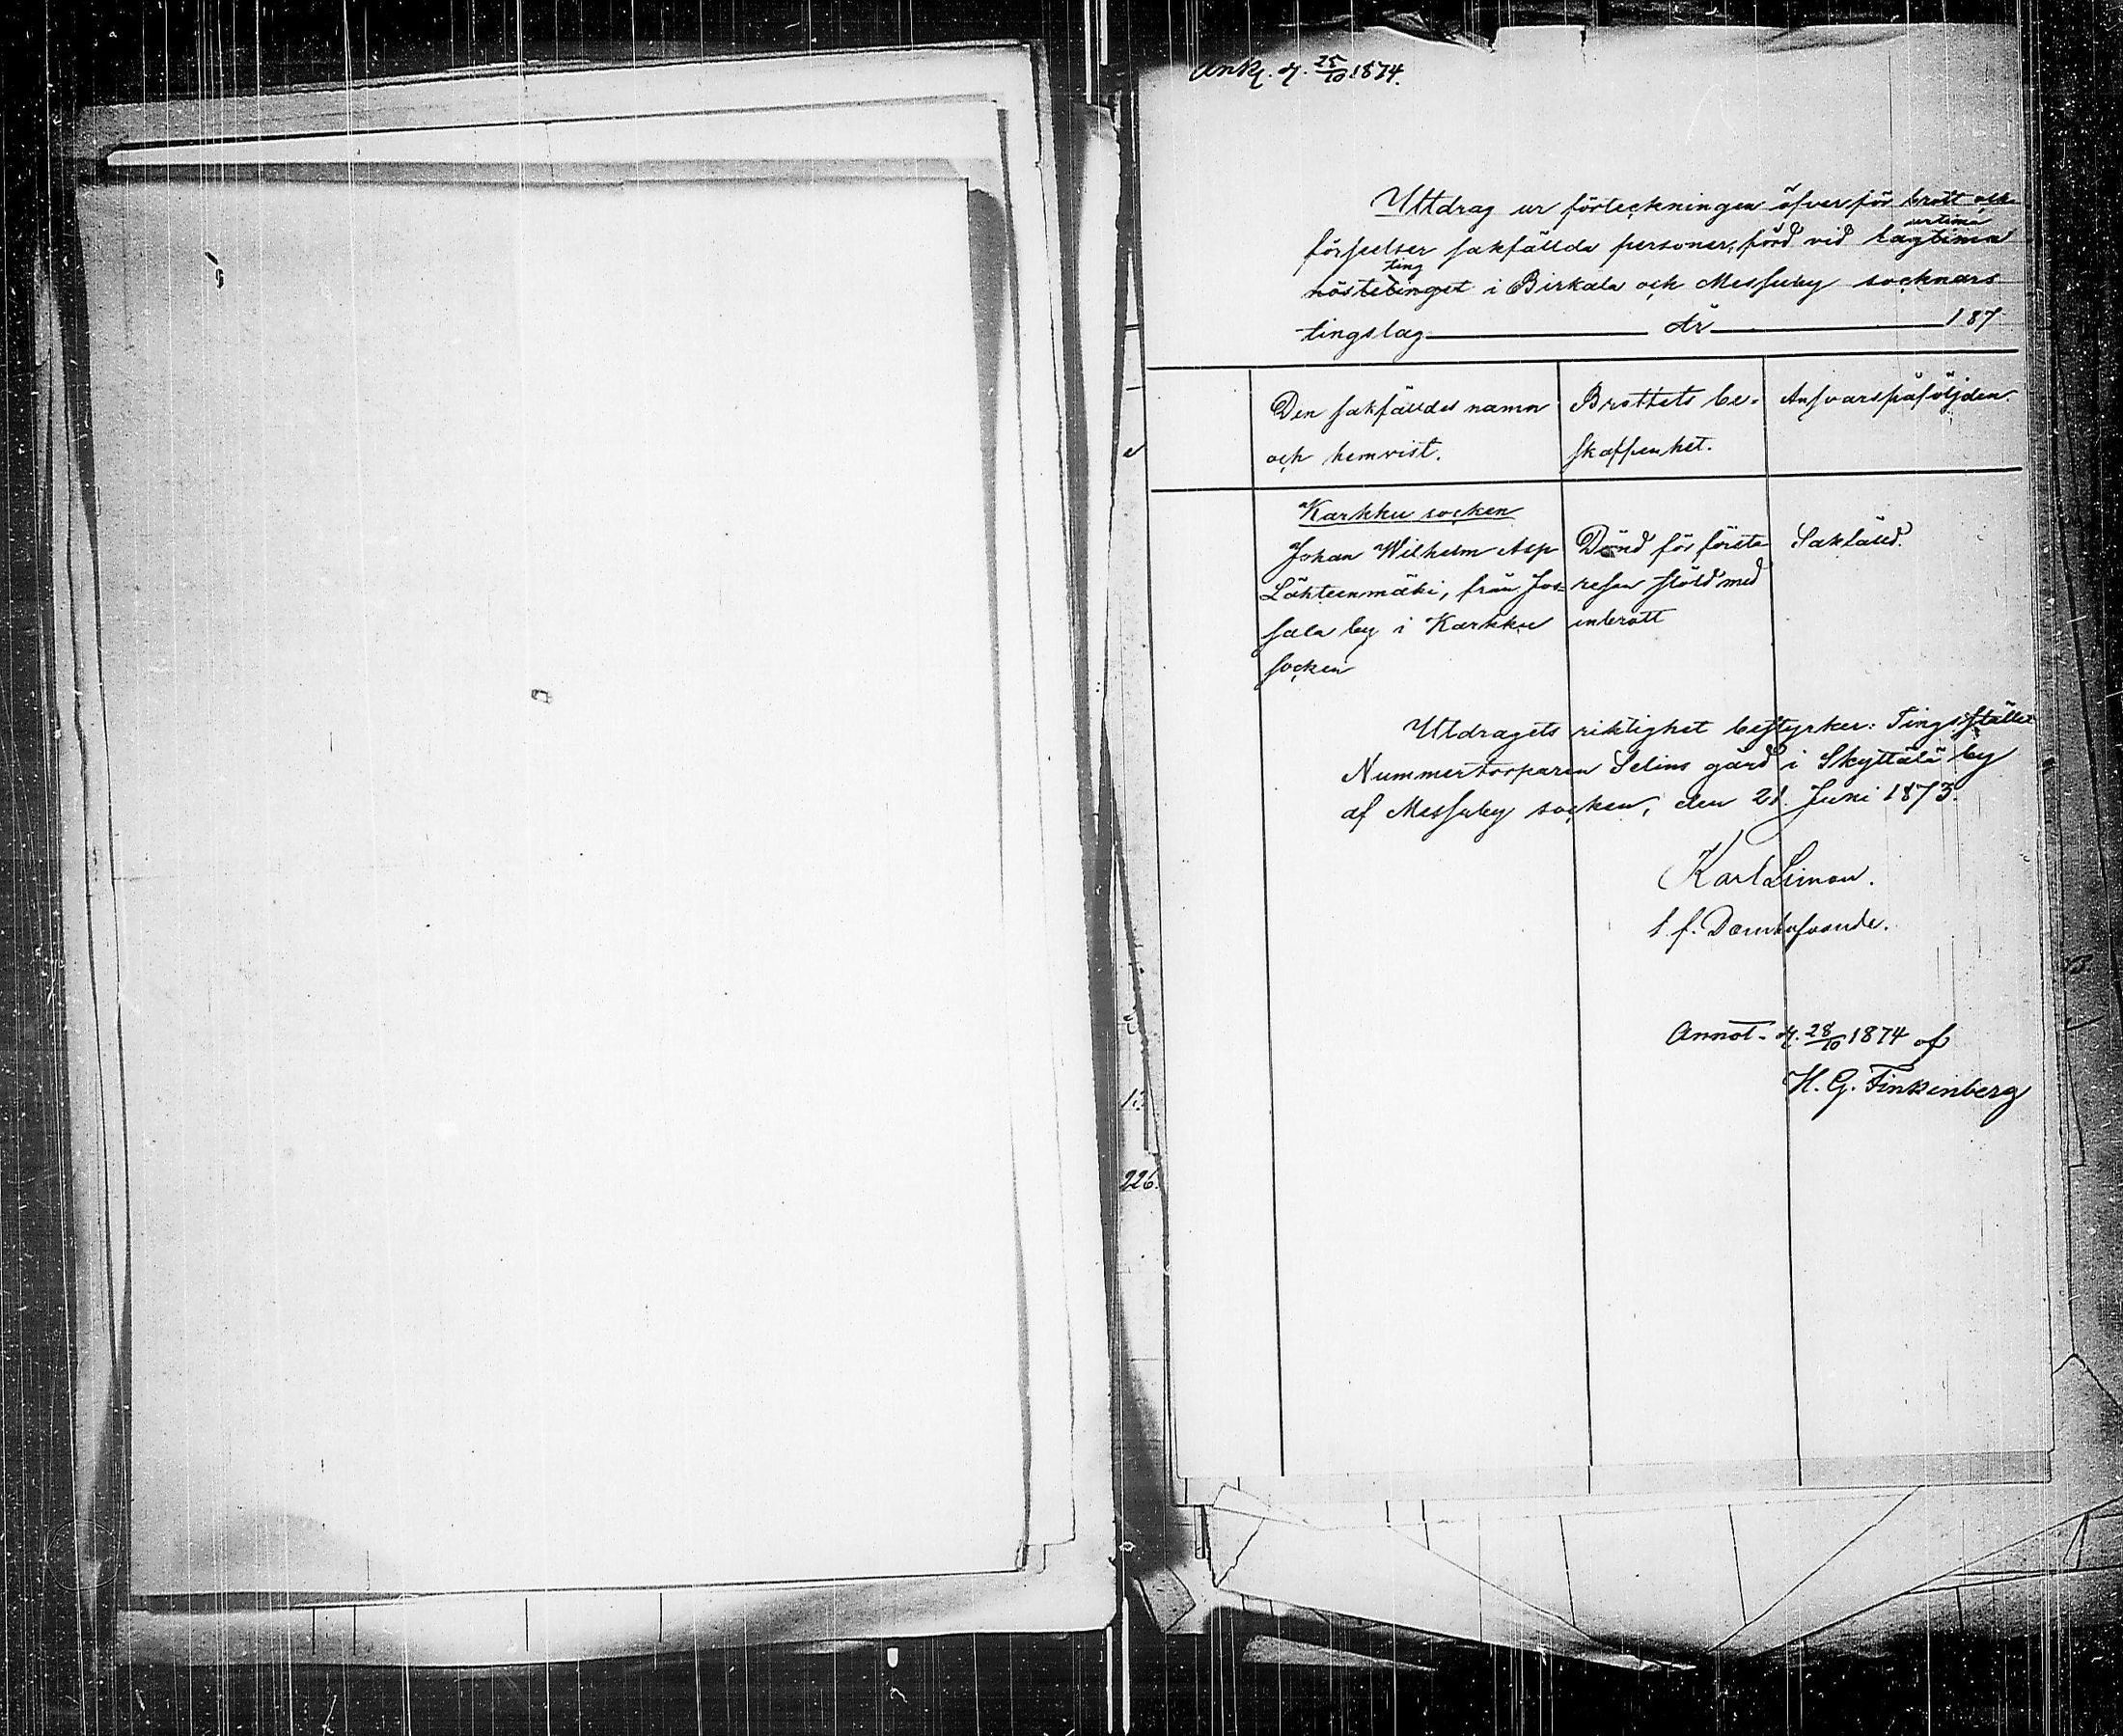 Ank. d. 25/10 1874.
Utdrag ur förteckningen öfver för brott och
förseelser sakfällda personer, förd vid lagtima urtima
hösttinget ting i Birkala och Messuby socknars
tingslag År 187
Den sakfälldes namn och hemvist.
Brottets be-skaffenhet.
Ansvarspåföljden
Karkku socken
Johan Wilhelm Asp
Lähteenmäki, från Jos-
sala by i Karkku
socken
Dömd för första
resan stöld med
inbrott
Sakfälld.
Utdragets riktighet bestyrker: Tingsstället
Nummertorparen Selins gård i Skyttälä by
af Messuby socken, den 21. Juni 1873.
Karl Limon.
t. f. Domhafvande.
Annot. d. 28/10 1874 af
H. G. Finkenberg
226.